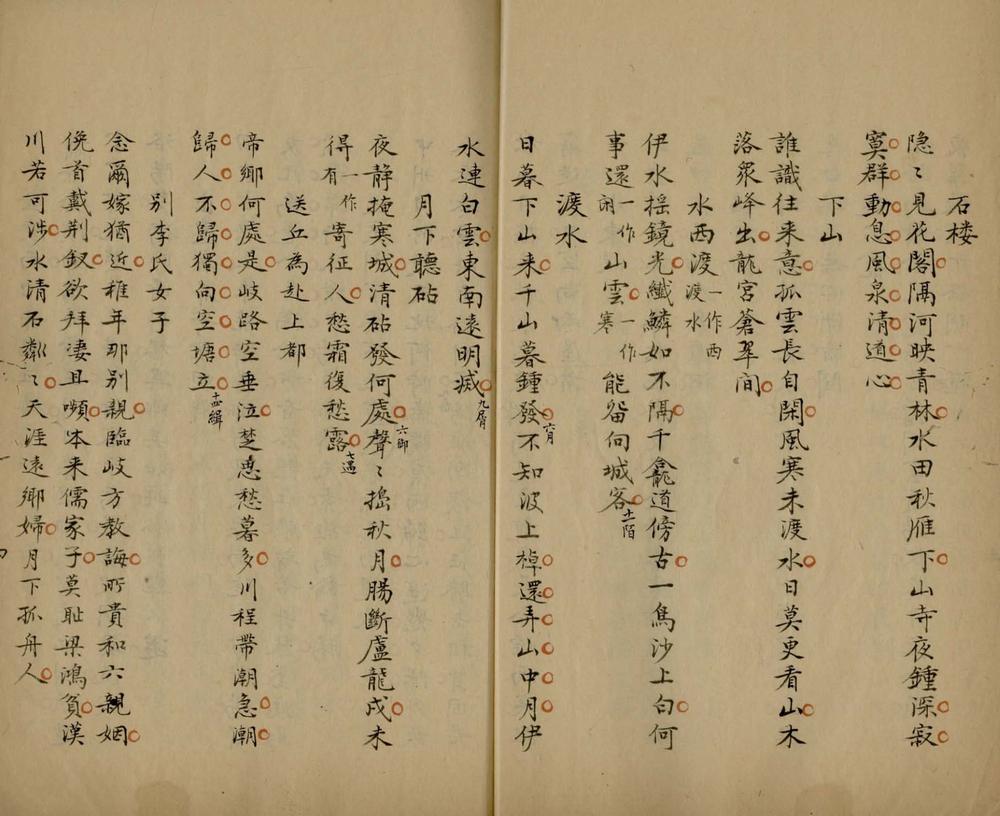 石楼
隐〻見花閣隔河映青林水田秋雁下山寺夜鍾深寂
寞群動息風泉清道心
下山
誰識往来意孤雲長自閑風寒未渡水日莫更看山木
落衆峰出龍宮蒼翠間
水西渡一作西渡水
伊水摇鏡光纖鱗如不隔千龕道傍古一鳥沙上白何
事還一作閑山雲一作寒能留向城客十一陌
渡水
日暮下山来千山暮鍾發不知波上棹還弄山中月伊六月
水連白雲東南遠明滅九屑
月下聽砧
夜静掩寒城清砧發何處聲〻搗秋月腸斷盧龍戍未六御
得一作有寄征人愁霜復愁露七遇
送丘為赴上都
帝鄉何處是岐路空垂泣楚思愁暮多川程帶潮急潮
歸人不歸獨向空塘立十四緝
别李氏女子
念爾嫁猶近稚年那别親臨岐方教誨所貴和六親姻
俛首戴荆釵欲拜凄且嚬本来儒家子莫耻梁鴻貧漢
川若可涉水清石粼〻天涯遠鄉婦月下孤舟人